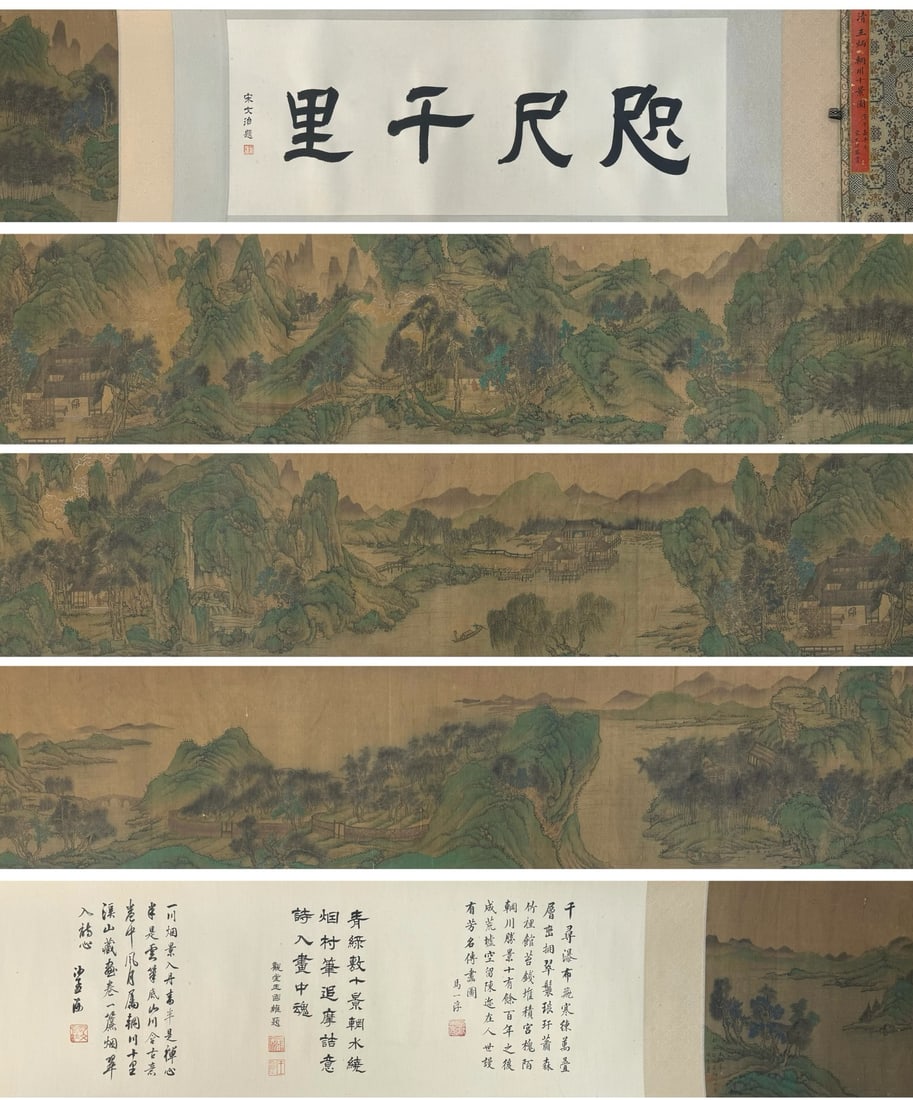 清 王炳 輞川十景圖
咫尺千里
宋文治題
千尋瀑布飛寒練萬疊
層巒擁翠鬟琅玕蕭森
竹裡館苔錢堆積宮槐陌
輞川勝景十有餘百年之後
成荒墟空留陳迹在人世謾
有芳名傳畫圖
馬一浮
青綠數十景輞水繞
烟村筆追摩詰意
詩入畫中魂
觀堂王國維題
一川烟景入丹青半是禪心
半是雲筆底山川今古意
卷中風月屬輞川十里
溪山藏畫卷一簾烟翠
入詩心
沙孟海